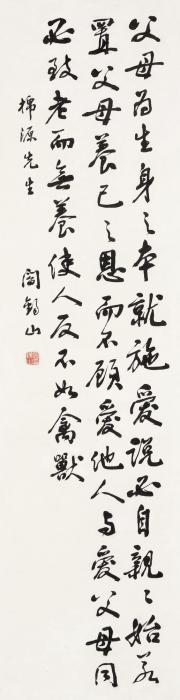 父母为生身之本就施爱说必自亲〻始若
置父母養己之恩而不顧爱他人与爱父母同
必致老而無養使人反不如禽獸
棉源先生
閻錫山